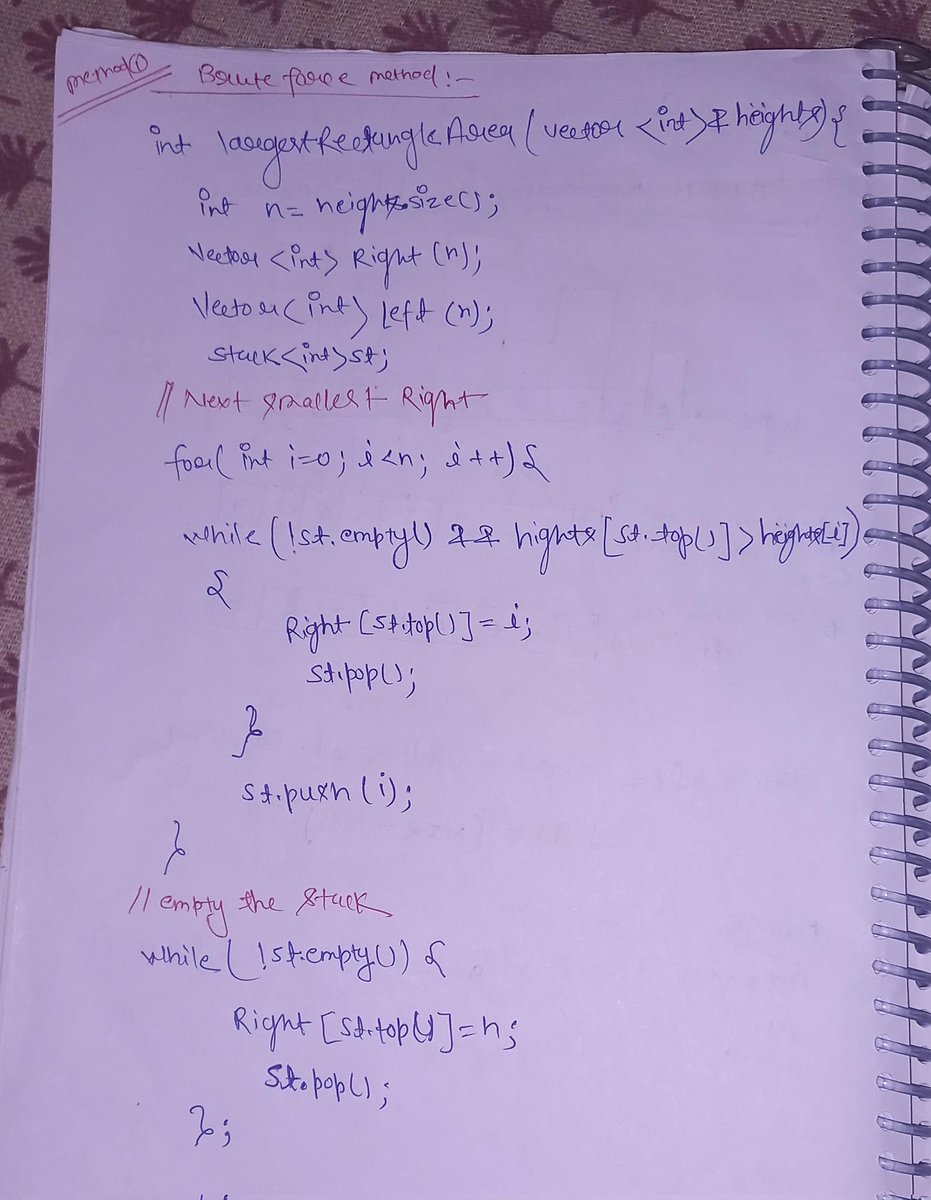 method ①
Brute force method :-
int largestRectangleArea (vector <int> & heights) {
int n = heights.size();
vector <int> Right (n);
vector <int> left (n);
stack <int> st;
// Next smallest Right
for( int i=0; i<n; i++) {
while (!st.empty() && hights [st.top()] > heights[i])
{
Right [st.top()] = i;
st.pop();
}
st.push (i);
}
// empty the stack
while ( !st.empty()) {
Right [st.top()] = n;
st.pop();
};